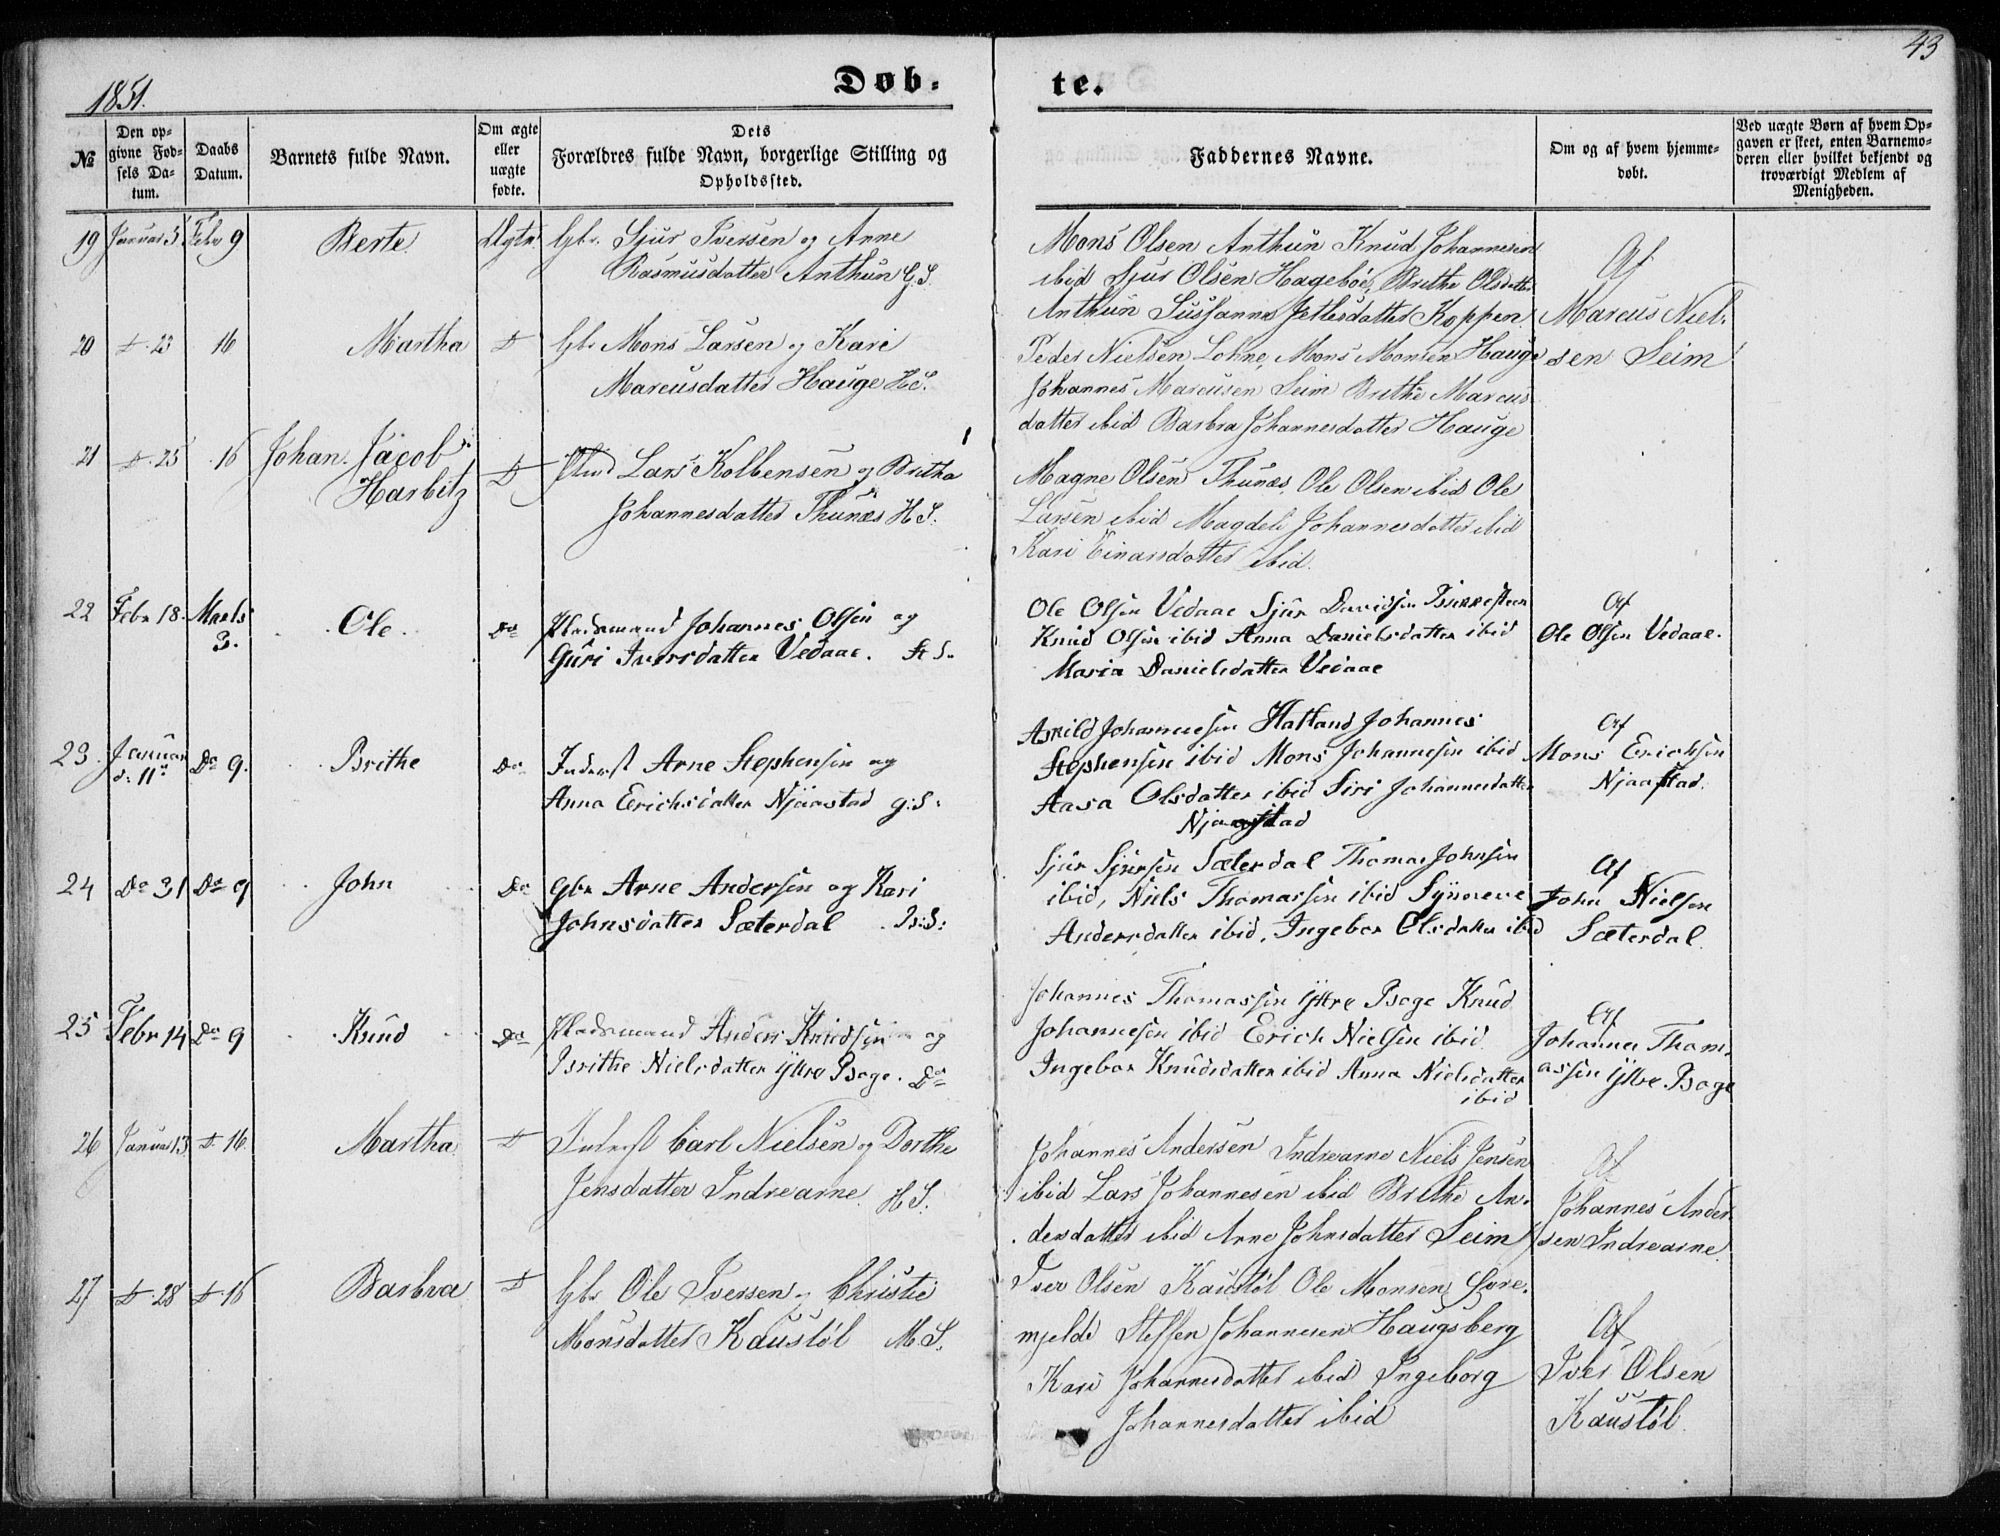 1851.
Døb-
te.
43
№
Den op-
givne Fød-
sels Da-
tum.
Daabs
Datum.
Barnets fulde Navn.
Om ægte
eller
uægte
fødte.
Dets
Forældres fulde Navn, borgerlige Stilling og
Opholdssted.
Faddernes Navne.
Om og af hvem hjemme-
døbt.
Ved uægte Børn af hvem Op-
gaven er skeet, enten Barnemo-
deren eller hvilket bekjendt og
troværdigt Medlem af
Menigheden.
19 Januar 5 Febr 9 Berte Ægte Gbr. Sjur Iversen og Anne
Rasmusdatter Anthun G.S.
Mons Olsen Anthun Knud Johannesen
ibid Sjur Olsen Hagebøe, Brithe Olsdatter
Anthun Susanna Jettesdatter Koppen
Af
Marcus Niel-
sen Seim
20 D 23 16 Martha D Gbr Mons Larsen og Kari
Marcusdatter Hauge H.S.
Peder Nielsen Lohne, Mons Monsen Hauge
Johannes Marcusen Seim Brithe Marcus
datter ibid Barbra Johannesdatter Hauge
21 D. 25 16 Johan Jacob
Harbitz
D Plmd Lars Kolbensen og Britha
Johannesdatter Thunæs H.S.
Magne Olsen Thunæs, Ole Olsen ibid Ole
Larsen ibid Magdeli Johannesdatter ibid
Kari Einarsdatter ibid.
22 Febr 18. Marts
3.
Ole Do Pladsmand Johannes Olsen og
Guri Iversdatter Vedaae. H.S.
Ole Olsen Vedaae Sjur Davidsen
Knud Olsen ibid Anna Danielsdatter ibid
Maria Danielsdatter Vedaae
Af
Ole Olsen Vedaae.
23. Januar
d. 11te
Do 9. Brithe Do Inderst Arne Stephensen og
Anna Erichsdatter Njaastad G:S:
Arnild Johannesen Hatland Johannes
Stephensen ibid Mons Johannesen ibid
Aasa Olsdatter ibid Siri Johannesdatter
Njaastad
Af
Mons Erichsen
Njaastad.
24 Do 31 Do 9 John Do Gbr Arne Andersen og Kari
Johnsdatter Sæterdal B:S:
Sjur Sjursen Sæterdal Thomas Johnsen
ibid, Niels Thomassen ibid Synneve
Andersdatter ibid, Ingebor Olsdatter ibid
Af
John Nielsen
Sæterdal.
25 Febr 14 Do 9 Knud Do Pladsmand Anders Knudsen og
Brithe Nielsdatter Ytre Boge. Do
Johannes Thomassen Ytre Boge Knud
Johannesen ibid Erich Nielsen ibid
Ingebor Knudsdatter ibid Anna Nielsdatter
ibid
Af
Johannes Thom-
assen Ytre Boge
26 Januar 13 D. 16. Martha D Inderst Carl Nielsen og Dorthe
Jensdatter Indrearne. H.S.
Johannes Andersen Indrearne Niels Jensen
ibid Lars Johannesen ibid Brithe An-
dersdatter ibid Arne Johnsdatter Seim
Af
Johannes Ander-
sen Indrearne
27 D 28 D 16 Barbra D Gbr Ole Iversen og Christie
Monsdatter Kaustøl M.S.
Iver Olsen Kaustøl Ole Monsen Øvre-
mjelde Steffen Johannesen Haugsberg
Kari Johannesdatter ibid Ingeborg
Johannesdatter ibid
Af
Iver Olsen
Kaustøl.